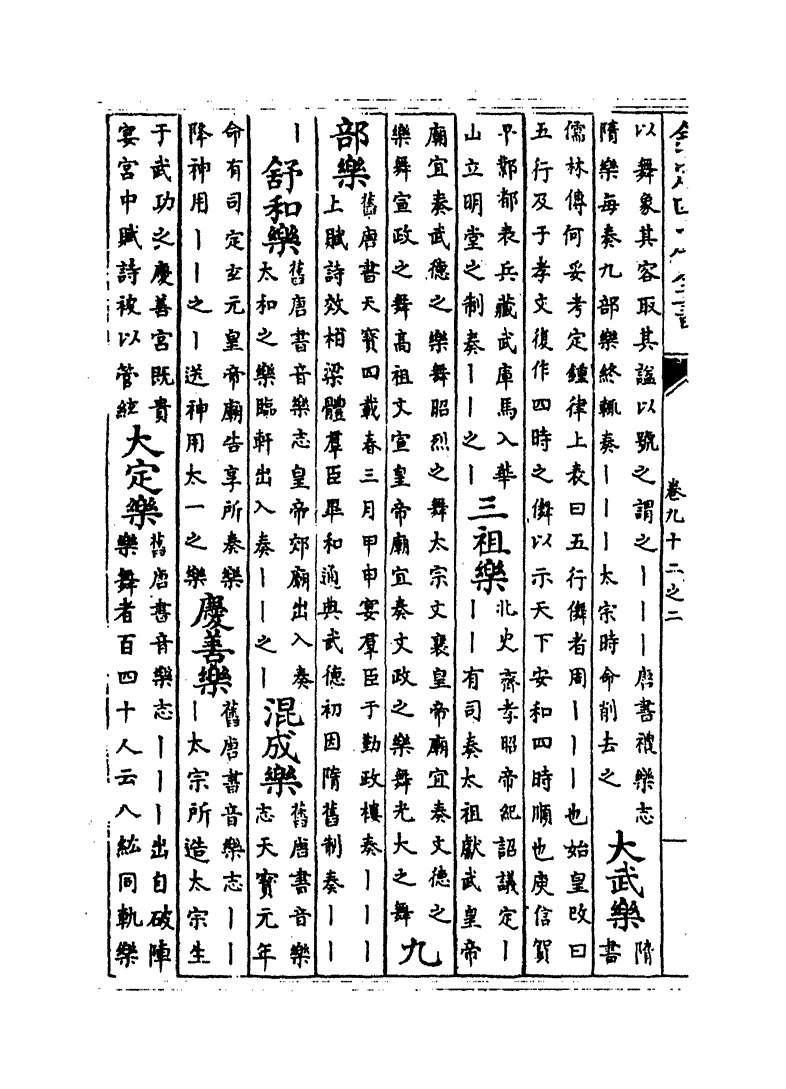 欽定四庫全書
卷九十二之二
以舞象其容取其諡以號之謂之丨丨丨唐書禮樂志
隋樂每奏九部樂終輒奏丨丨丨太宗時命削去之
大武樂
隋
書
儒林傳何妥考定鍾律上表曰五行儛者周丨丨丨也始皇改曰
五行及于孝文復作四時之儛以示天下安和四時順也庾信賀
平鄴都表兵藏武庫馬入華
山立明堂之制奏丨丨之丨
三祖樂
北史齊孝昭帝紀詔議定丨
丨丨有司奏太祖獻武皇帝
廟宜奏武德之樂舞昭烈之舞太宗文襄皇帝廟宜奏文德之
樂舞宣政之舞高祖文宣皇帝廟宜奏文政之樂舞光大之舞
九
部樂
舊唐書天寶四載春三月甲申宴羣臣于勤政樓奏丨丨丨
上賦詩效栢梁體羣臣畢和通典武德初因隋舊制奏丨丨
丨
舒和樂
舊唐書音樂志皇帝郊廟出入奏
太和之樂臨軒出入奏丨丨之丨
混成樂
舊唐書音樂
志天寶元年
命有司定玄元皇帝廟告享所奏樂
降神用丨丨之丨送神用太一之樂
慶善樂
舊唐書音樂志丨丨
丨太宗所造太宗生
于武功之慶善宮既貴
宴宮中賦詩被以管絃
大定樂
舊唐書音樂志丨丨丨出自破陣
樂舞者百四十人云八紘同軌樂